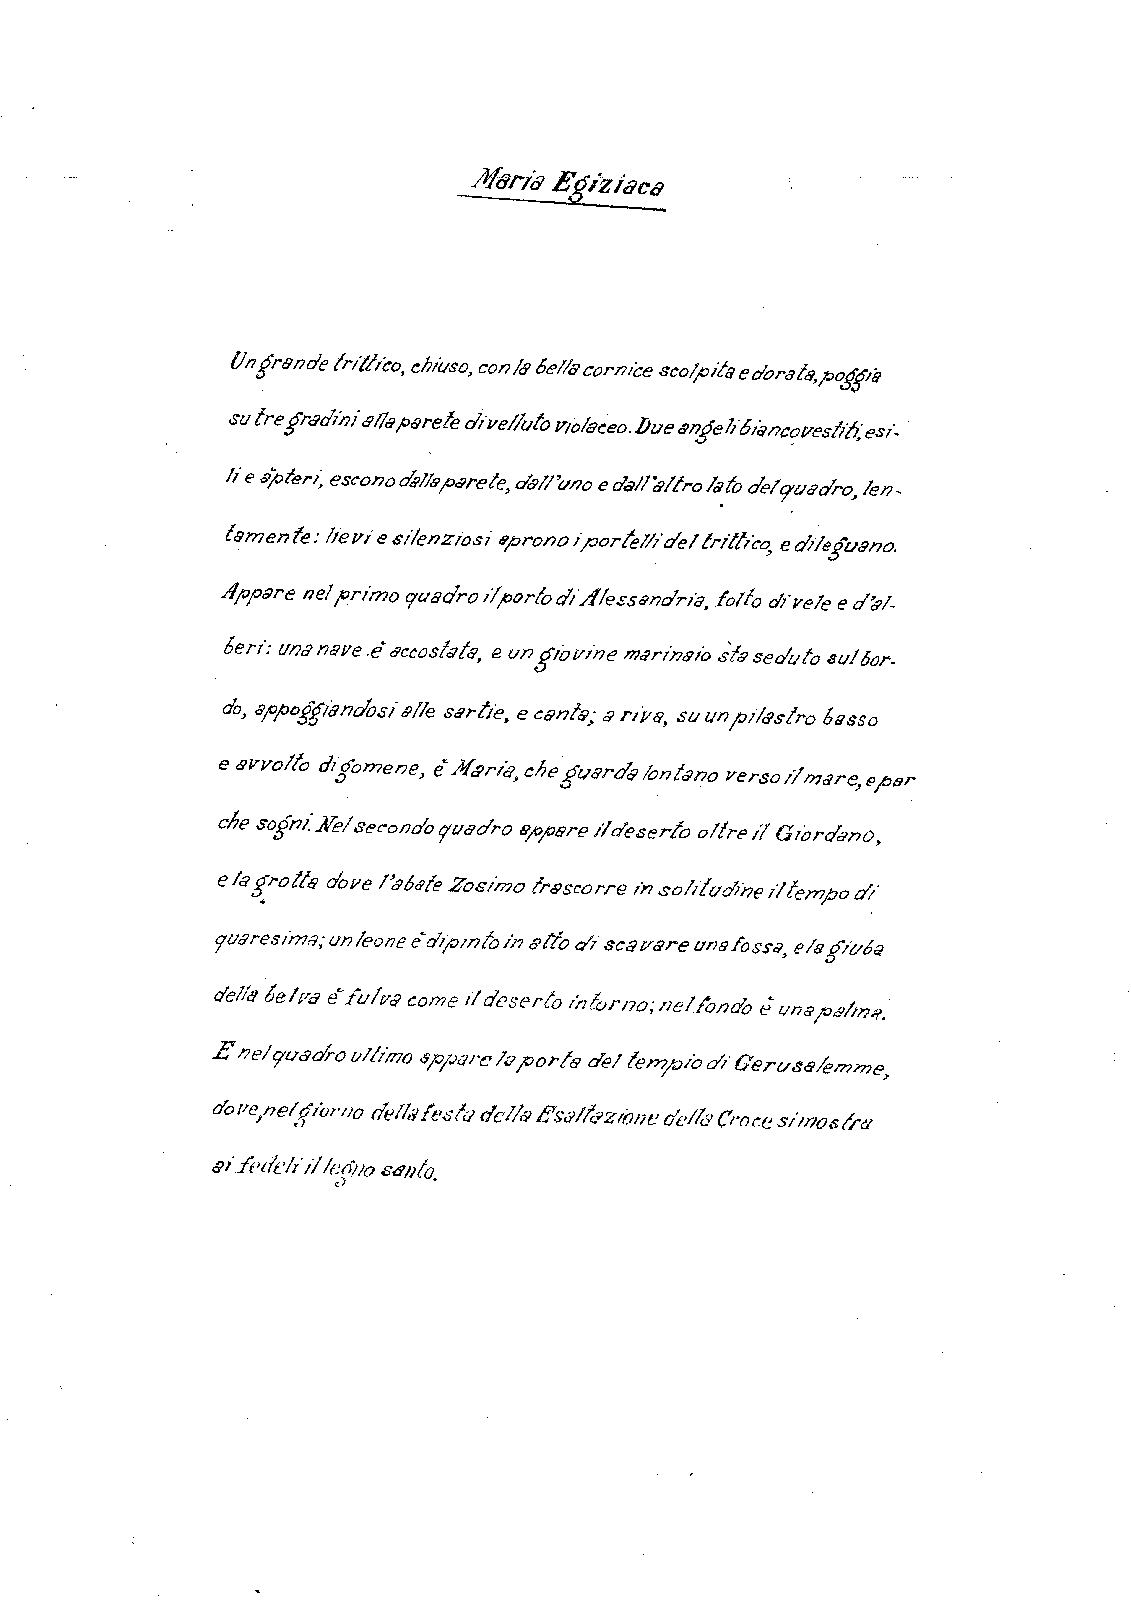 Maria Egiziaca
Un grande trittico, chiuso, con la bella cornice scolpita e dorata, poggia
su tre gradini alla parete di velluto violaceo. Due angeli biancovestiti, esi-
li e àpteri, escono dalla parete, dall'uno e dall'altro lato del quadro, len-
tamente: lievi e silenziosi aprono i portelli del trittico, e dileguano.
Appare nel primo quadro il porto di Alessandria, folto di vele e d'al-
beri: una nave è accostata, e un giovine marinaio sta seduto sul bor-
do, appoggiandosi alle sartie, e canta; a riva, su un pilastro basso
e avvolto di gomene, è Maria, che guarda lontano verso il mare, e par
che sogni. Nel secondo quadro appare il deserto oltre il Giordano,
e la grotta dove l'abate Zosimo trascorre in solitudine il tempo di
quaresima; un leone è dipinto in atto di scavare una fossa, e la giuba
della belva è fulva come il deserto intorno; nel fondo è una palma.
E nel quadro ultimo appare la porta del tempio di Gerusalemme,
dove, nel giorno della festa della Esaltazione della Croce si mostra
ai fedeli il legno santo.